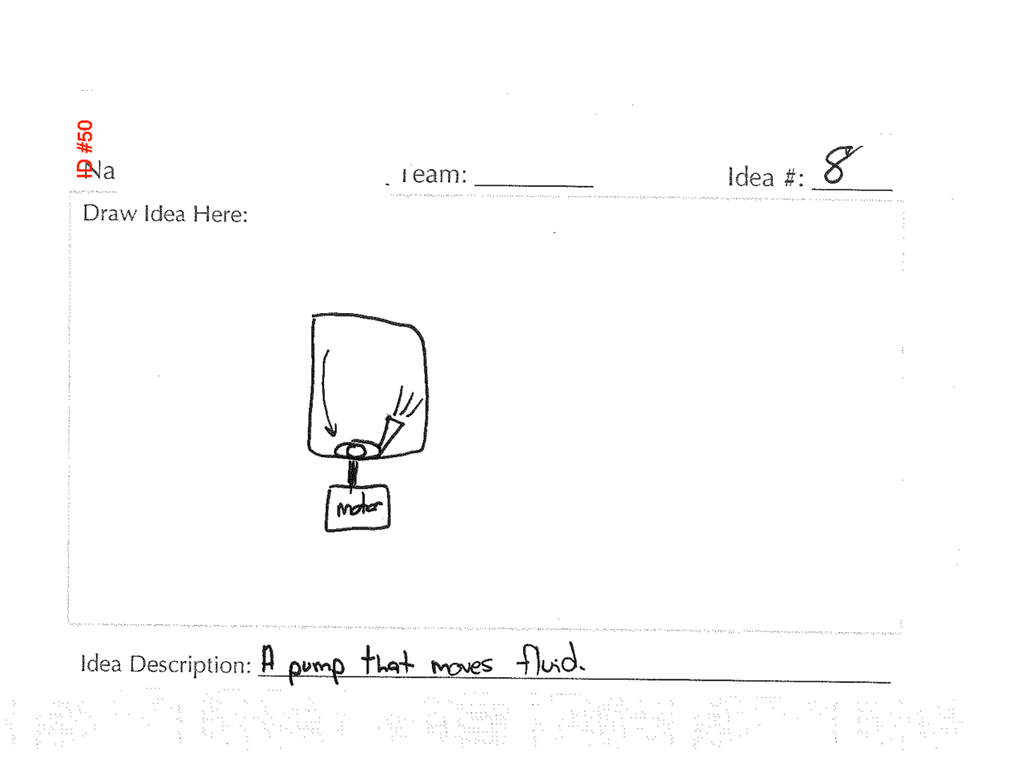 ID #50
Na
Team: Idea #: 8
Draw Idea Here:
motor
Idea Description: A pump that moves fluid.